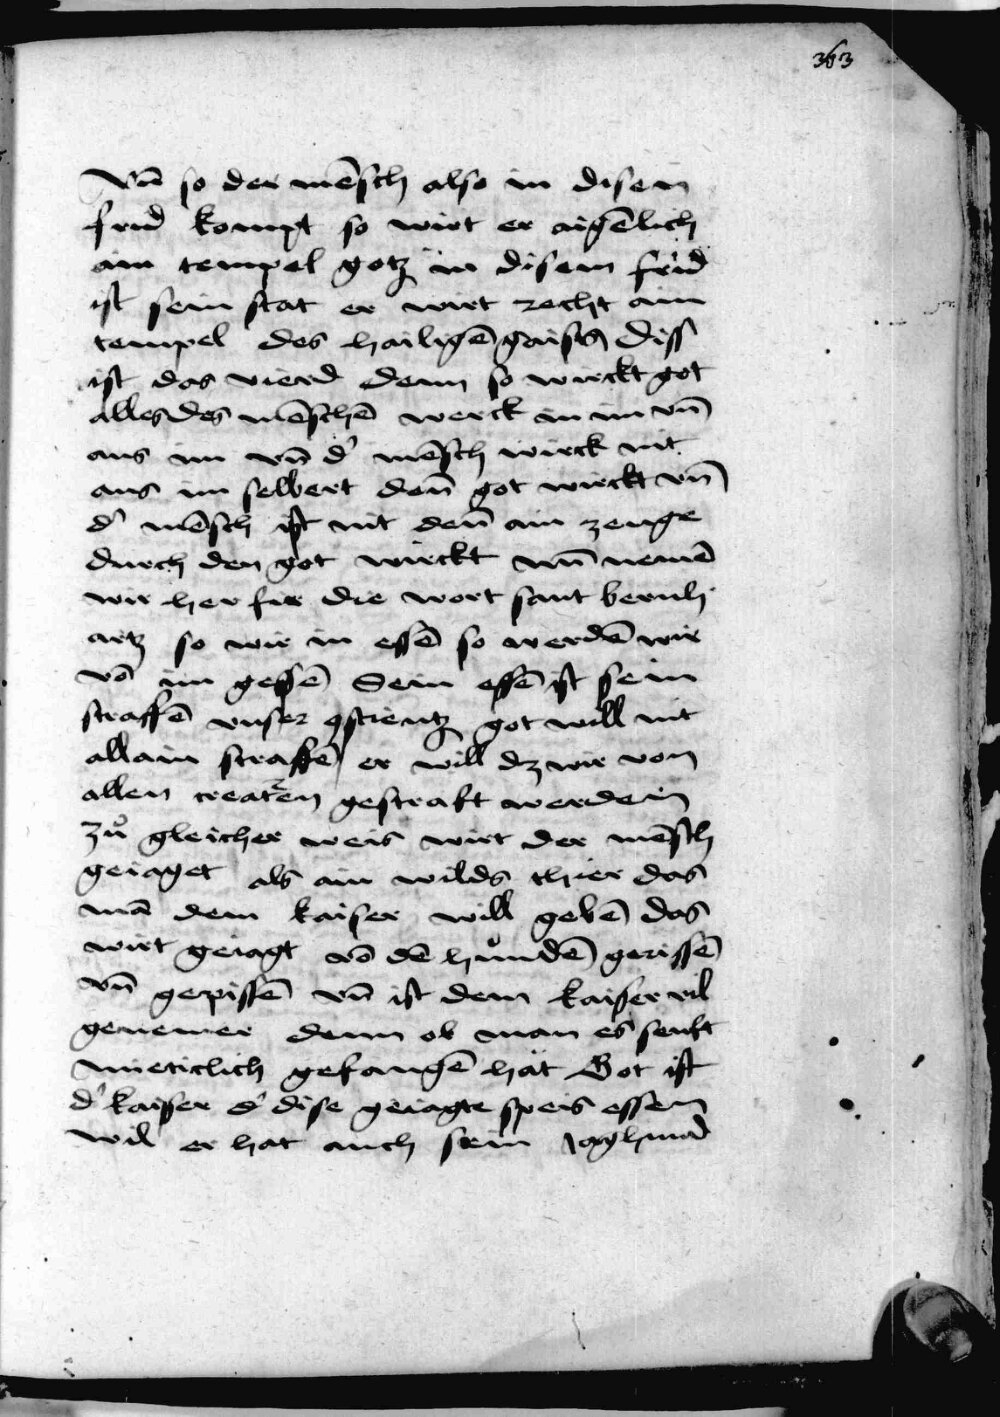 363
Vn̄ so der mēsch also in disen
frid kompt so wirt er aigēlich
ain tempel gotz in disem frid
ist sein stat er wirt recht ain
tempel des hailigē gaists diss
ist das vierd denn so wirckt got
alles des mēschē werck in im vn̄
aus im vn̄ d' mēsch wirck nit
aus im selbert den̄ got wirckt vn̄
d' mēsch ist nit den̄ ain zeuge
durch den got wirckt nun nemē
wir her fir die wort sant bernh
artz so wir in essē so werdē wir
vō im gessē Sein essē ist sein
straffē vnser 9scientz got will nit
allain straffē er will dz wir von
allen creatᷣen gestraft werden
zů gleicher weis wirt der mēsch
geiaget als ain wilds thier das
mā dem kaiser will gebē das
wirt geiagt vō dē hůndē gerissē
vn̄ gepissē vn̄ ist dem kaiser vil
genemer denn ob man es senft
mieticlich gefangē hät Got ist
d' kaiser d' dise geiagte speis essen
wil er hat auch sein Jaghund